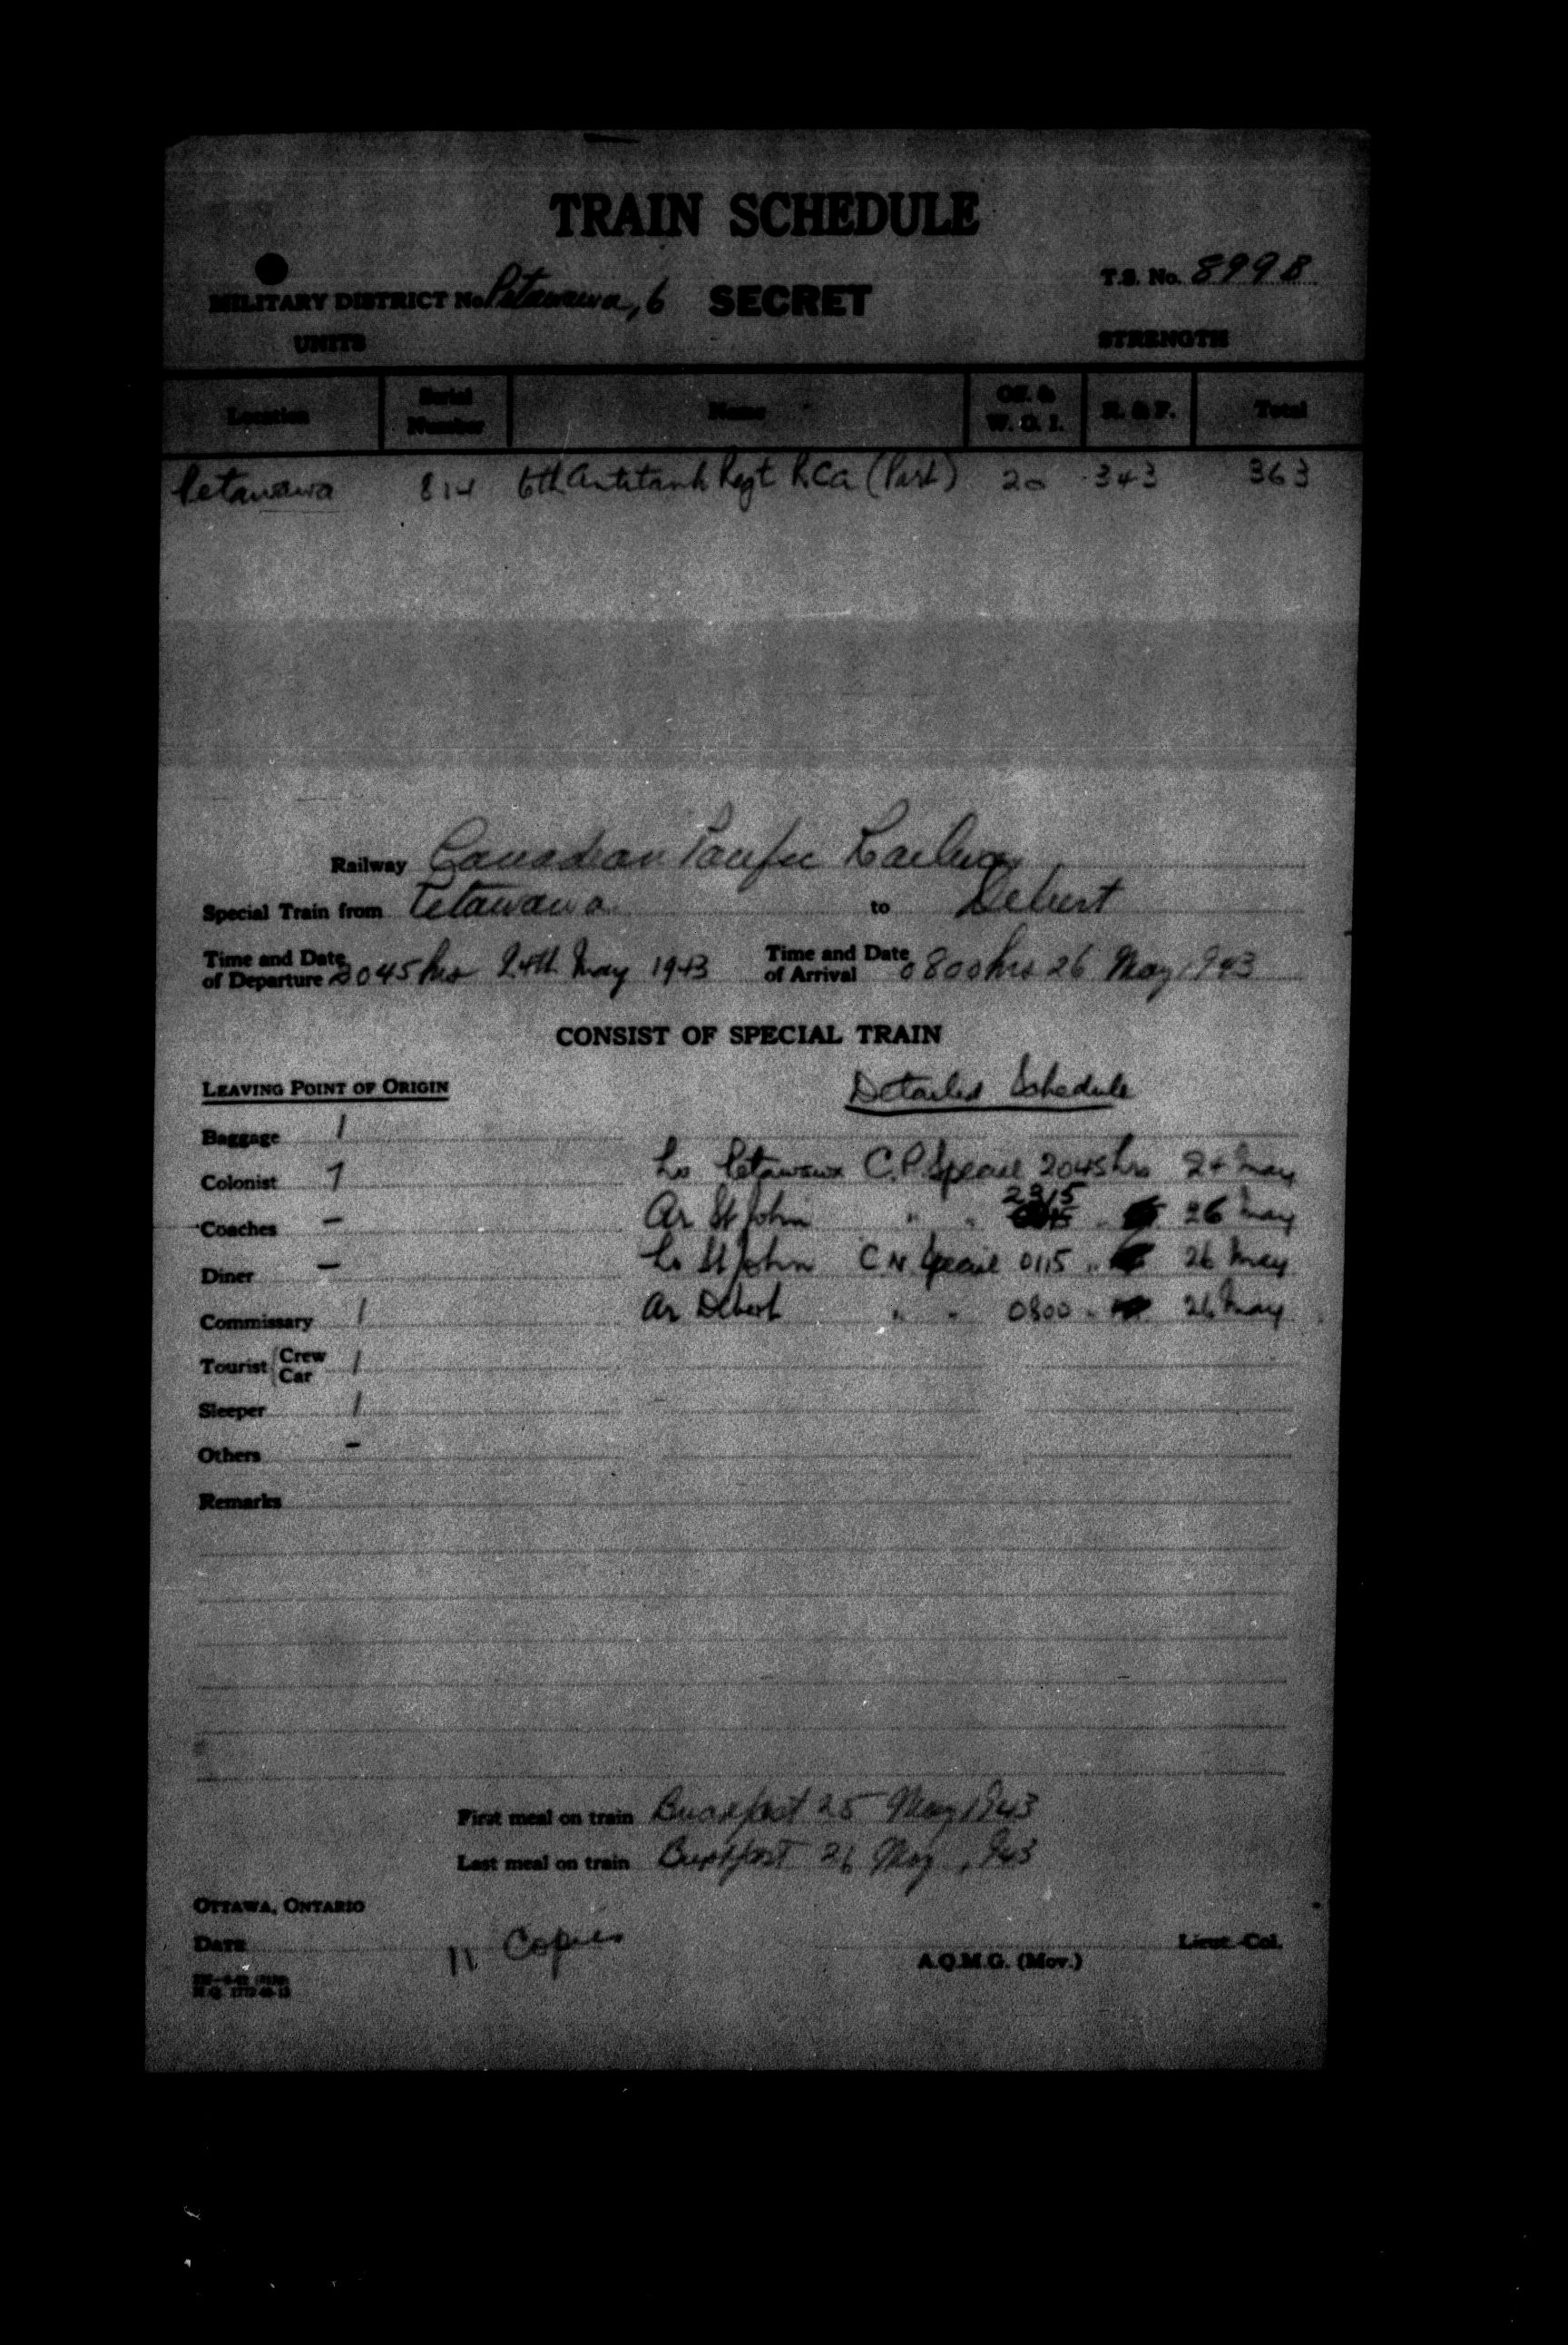 TRAIN SCHEDULE
MILITARY DISTRICT No. Petawawa, 6 SECRET T.S. No. 899B
UNITS STRENGTH
Location Serial Number Name Off. & W. O. I. R. & F. Total
Petawawa 814 6th Antitank Regt RCA (Part) 20 343 363
Railway Canadian Pacific Railway
Special Train from Petawawa to Debert
Time and Date of Departure 2045 hrs 24th May 1943 Time and Date of Arrival 0800 hrs 26 May 1943
CONSIST OF SPECIAL TRAIN
LEAVING POINT OF ORIGIN Detailed Schedule
Baggage 1
Colonist 7 Lv Petawawa C.P. Special 2045 hrs 24 May
Coaches – Ar St John " " 2315 " 26 May
Diner – Lv St John C N Special 0115 " 26 May
Commissary 1 Ar Debert " " 0800 " 26 May
Tourist { Crew Car 1
Sleeper 1
Others –
Remarks
First meal on train Breakfast 25 May 1943
Last meal on train Breakfast 26 May 1943
OTTAWA, ONTARIO
DATE 11 Copies Lieut.-Col.
A.Q.M.G. (Mov.)